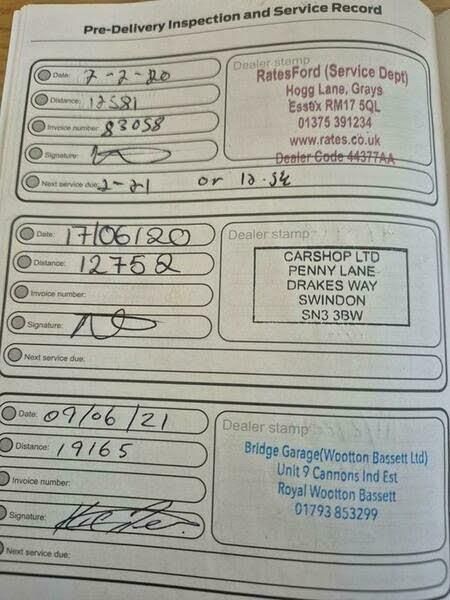 Pre-Delivery Inspection and Service Record
Date: 7-2-20
Distance: 12581
Invoice number: 83058
Signature:
Next service due: 2-21 or
Dealer stamp
RatesFord (Service Dept)
Hogg Lane, Grays
Essex RM17 5QL
01375 391234
www.rates.co.uk
Dealer Code 44377AA
Date: 17/06/20
Distance: 12752
Invoice number:
Signature:
Next service due:
Dealer stamp
CARSHOP LTD
PENNY LANE
DRAKES WAY
SWINDON
SN3 3BW
Date: 09/06/21
Distance: 19165
Invoice number:
Signature:
Next service due:
Dealer stamp
Bridge Garage(Wootton Bassett Ltd)
Unit 9 Cannons Ind Est
Royal Wootton Bassett
01793 853299